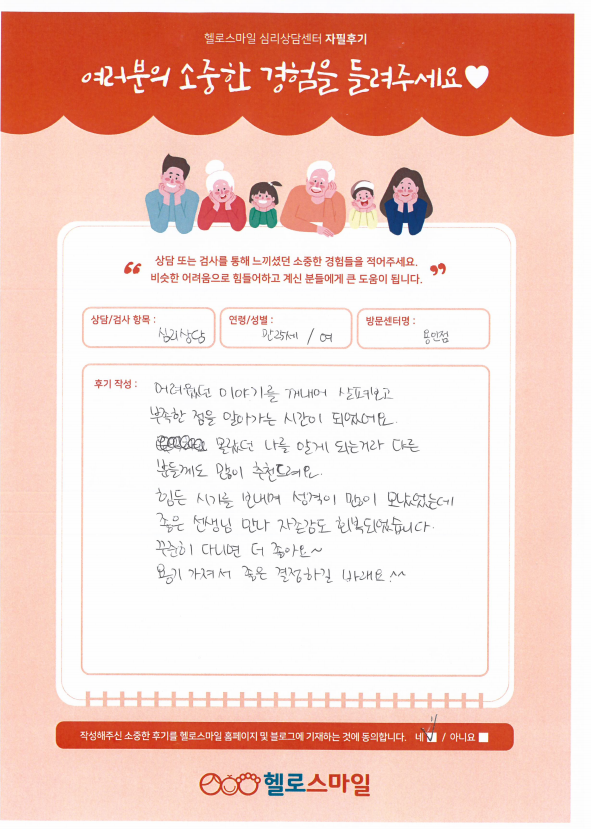 헬로스마일 심리상담센터 자필후기
여러분의 소중한 경험을 들려주세요
상담 또는 검사를 통해 느끼셨던 소중한 경험들을 적어주세요.
비슷한 어려움으로 힘들어하고 계신 분들에게 큰 도움이 됩니다.
상담/검사 항목 : 심리상담
연령/성별 : 만25세 / 여
방문센터명 : 용인점
후기 작성 :
어려웠던 이야기를 꺼내어 살펴보고
부족한 점을 알아가는 시간이 되었어요.
몰랐던 나를 알게 되는거라 다른
분들께도 많이 추천드려요.
힘든 시기를 보내며 성격이 많이 모났었는데
좋은 선생님 만나 자존감도 회복되었습니다.
꾸준히 다니면 더 좋아요~
용기 가져서 좋은 결정하길 바래요 ^^
작성해주신 소중한 후기를 헬로스마일 홈페이지 및 블로그에 기재하는 것에 동의합니다. 네 / 아니요
헬로스마일